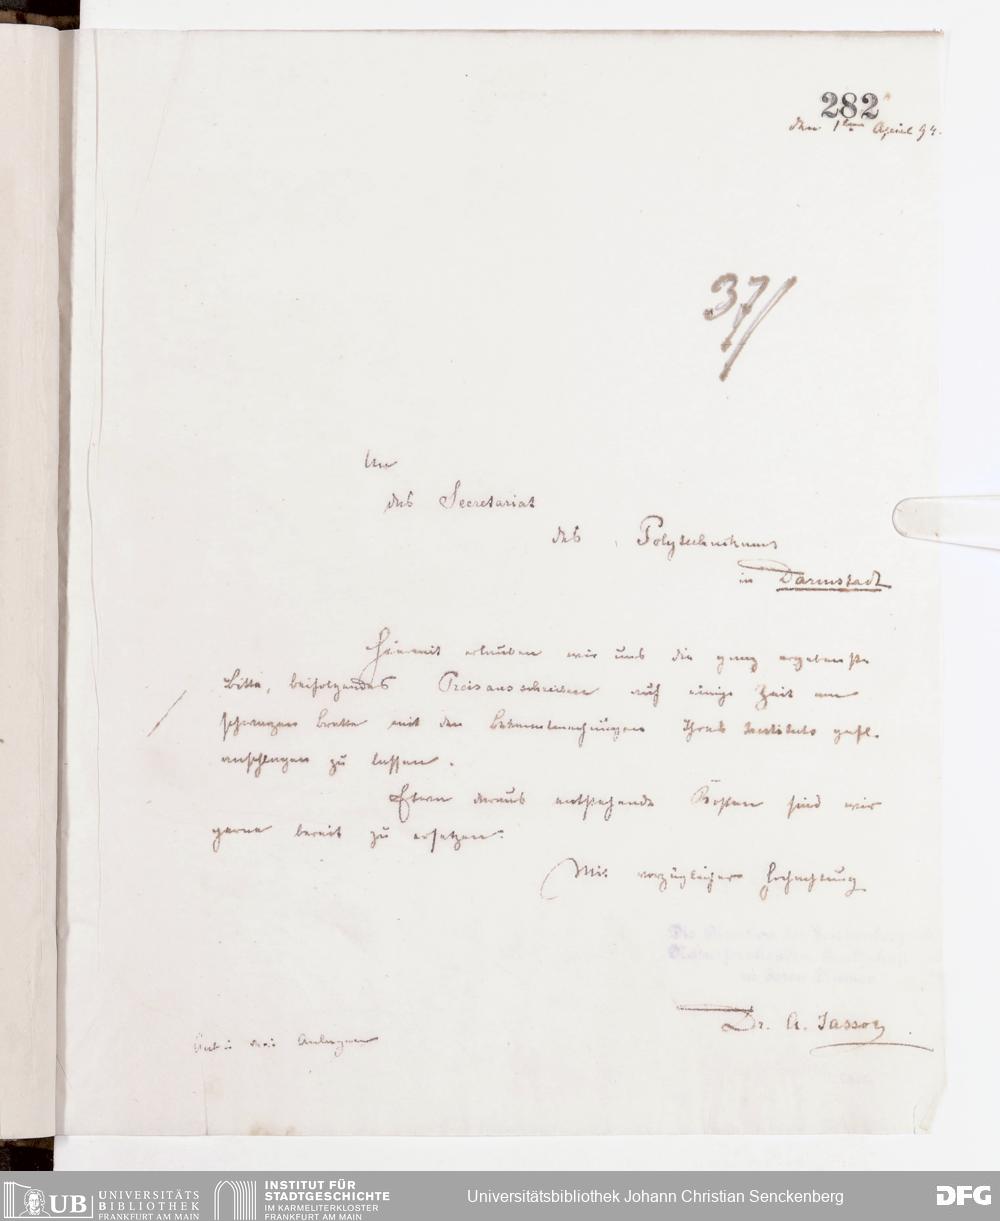 282
den 1ten April 94.
37/
An
das Secretariat
des Polytechnikums
in Darmstadt
Hiermit erlauben wir uns die ganz ergebenste
Bitte, beifolgendes Preisausschreiben auf einige Zeit am
schwarzen Brette mit den Bekanntmachungen Ihres Instituts gefl.
anschlagen zu lassen.
Etwa daraus entstehende Kosten sind wir
gerne bereit zu ersetzen.
Mit vorzüglicher Hochachtung
Die Direction der Senckenberg
Dr. A. Jassoy
Anlagen
UB UNIVERSITÄTS
BIBLIOTHEK
FRANKFURT AM MAIN
INSTITUT FÜR
STADTGESCHICHTE
IM KARMELITERKLOSTER
FRANKFURT AM MAIN
Universitätsbibliothek Johann Christian Senckenberg
DFG